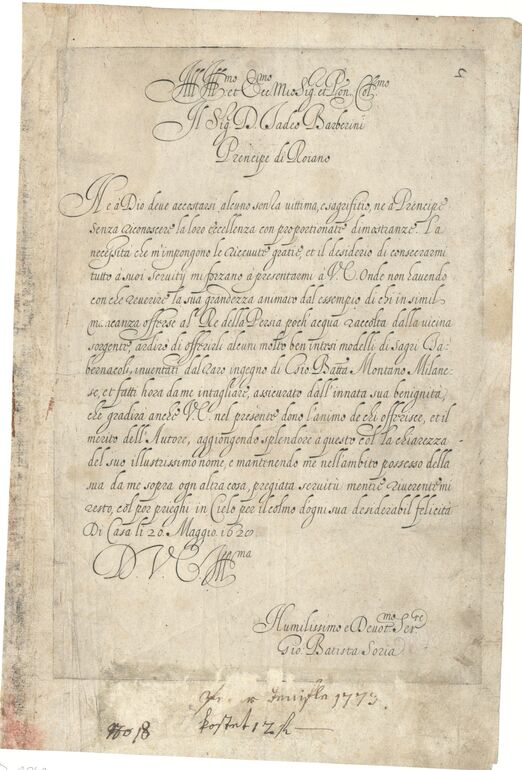 Ill.mo et Ecc.mo Mio Sig. et Pron. Col.mo
Il Sig. D. Tadeo Barberini
Prencipe di Roiano
Ne à Dio deve accostarsi alcuno son la vittima, e sagrifitio, ne à Prencipe
senza riconoscere la loro eccellenza con proportionate dimostranze. La
necessita che m'impongono le ricevute gratie, et il desiderio di consecrarmi
tutto à suoi servitij mi forzano à presentarmi à V.E. Onde non havendo
con che riverire la sua grandezza animato dall essempio di chi in simil
mancanza offerse al Re della Persia poch acqua raccolta dalla vicina
sorgente, ardiro di offrirli alcuni molto ben intesi modelli di sagri Ta-
bernacoli, inventati dal raro ingegno di Gio. Batta. Montano Milane-
se, et fatti hora da me intagliare, assicurato dall'innata sua benignita,
che gradira anche V.E. nel presente dono l'animo de chi offerisce, et il
merito dell'Autore, aggiongendo splendore a questo col la chiarezza
del suo illustrissimo nome, e mantenendo me nell'ambito possesso della
sua da me sopra ogn altra cosa, pregiata servitù mentre riverentemi
resto, col por prieghi in Cielo per il colmo dogni sua desiderabil felicità
Di Casa li 20. Maggio. 1628
D V. E. Ill.ma
Humilissimo e Devot.mo Ser.re
Gio. Batista Soria
1773.
No 18 kostet 12